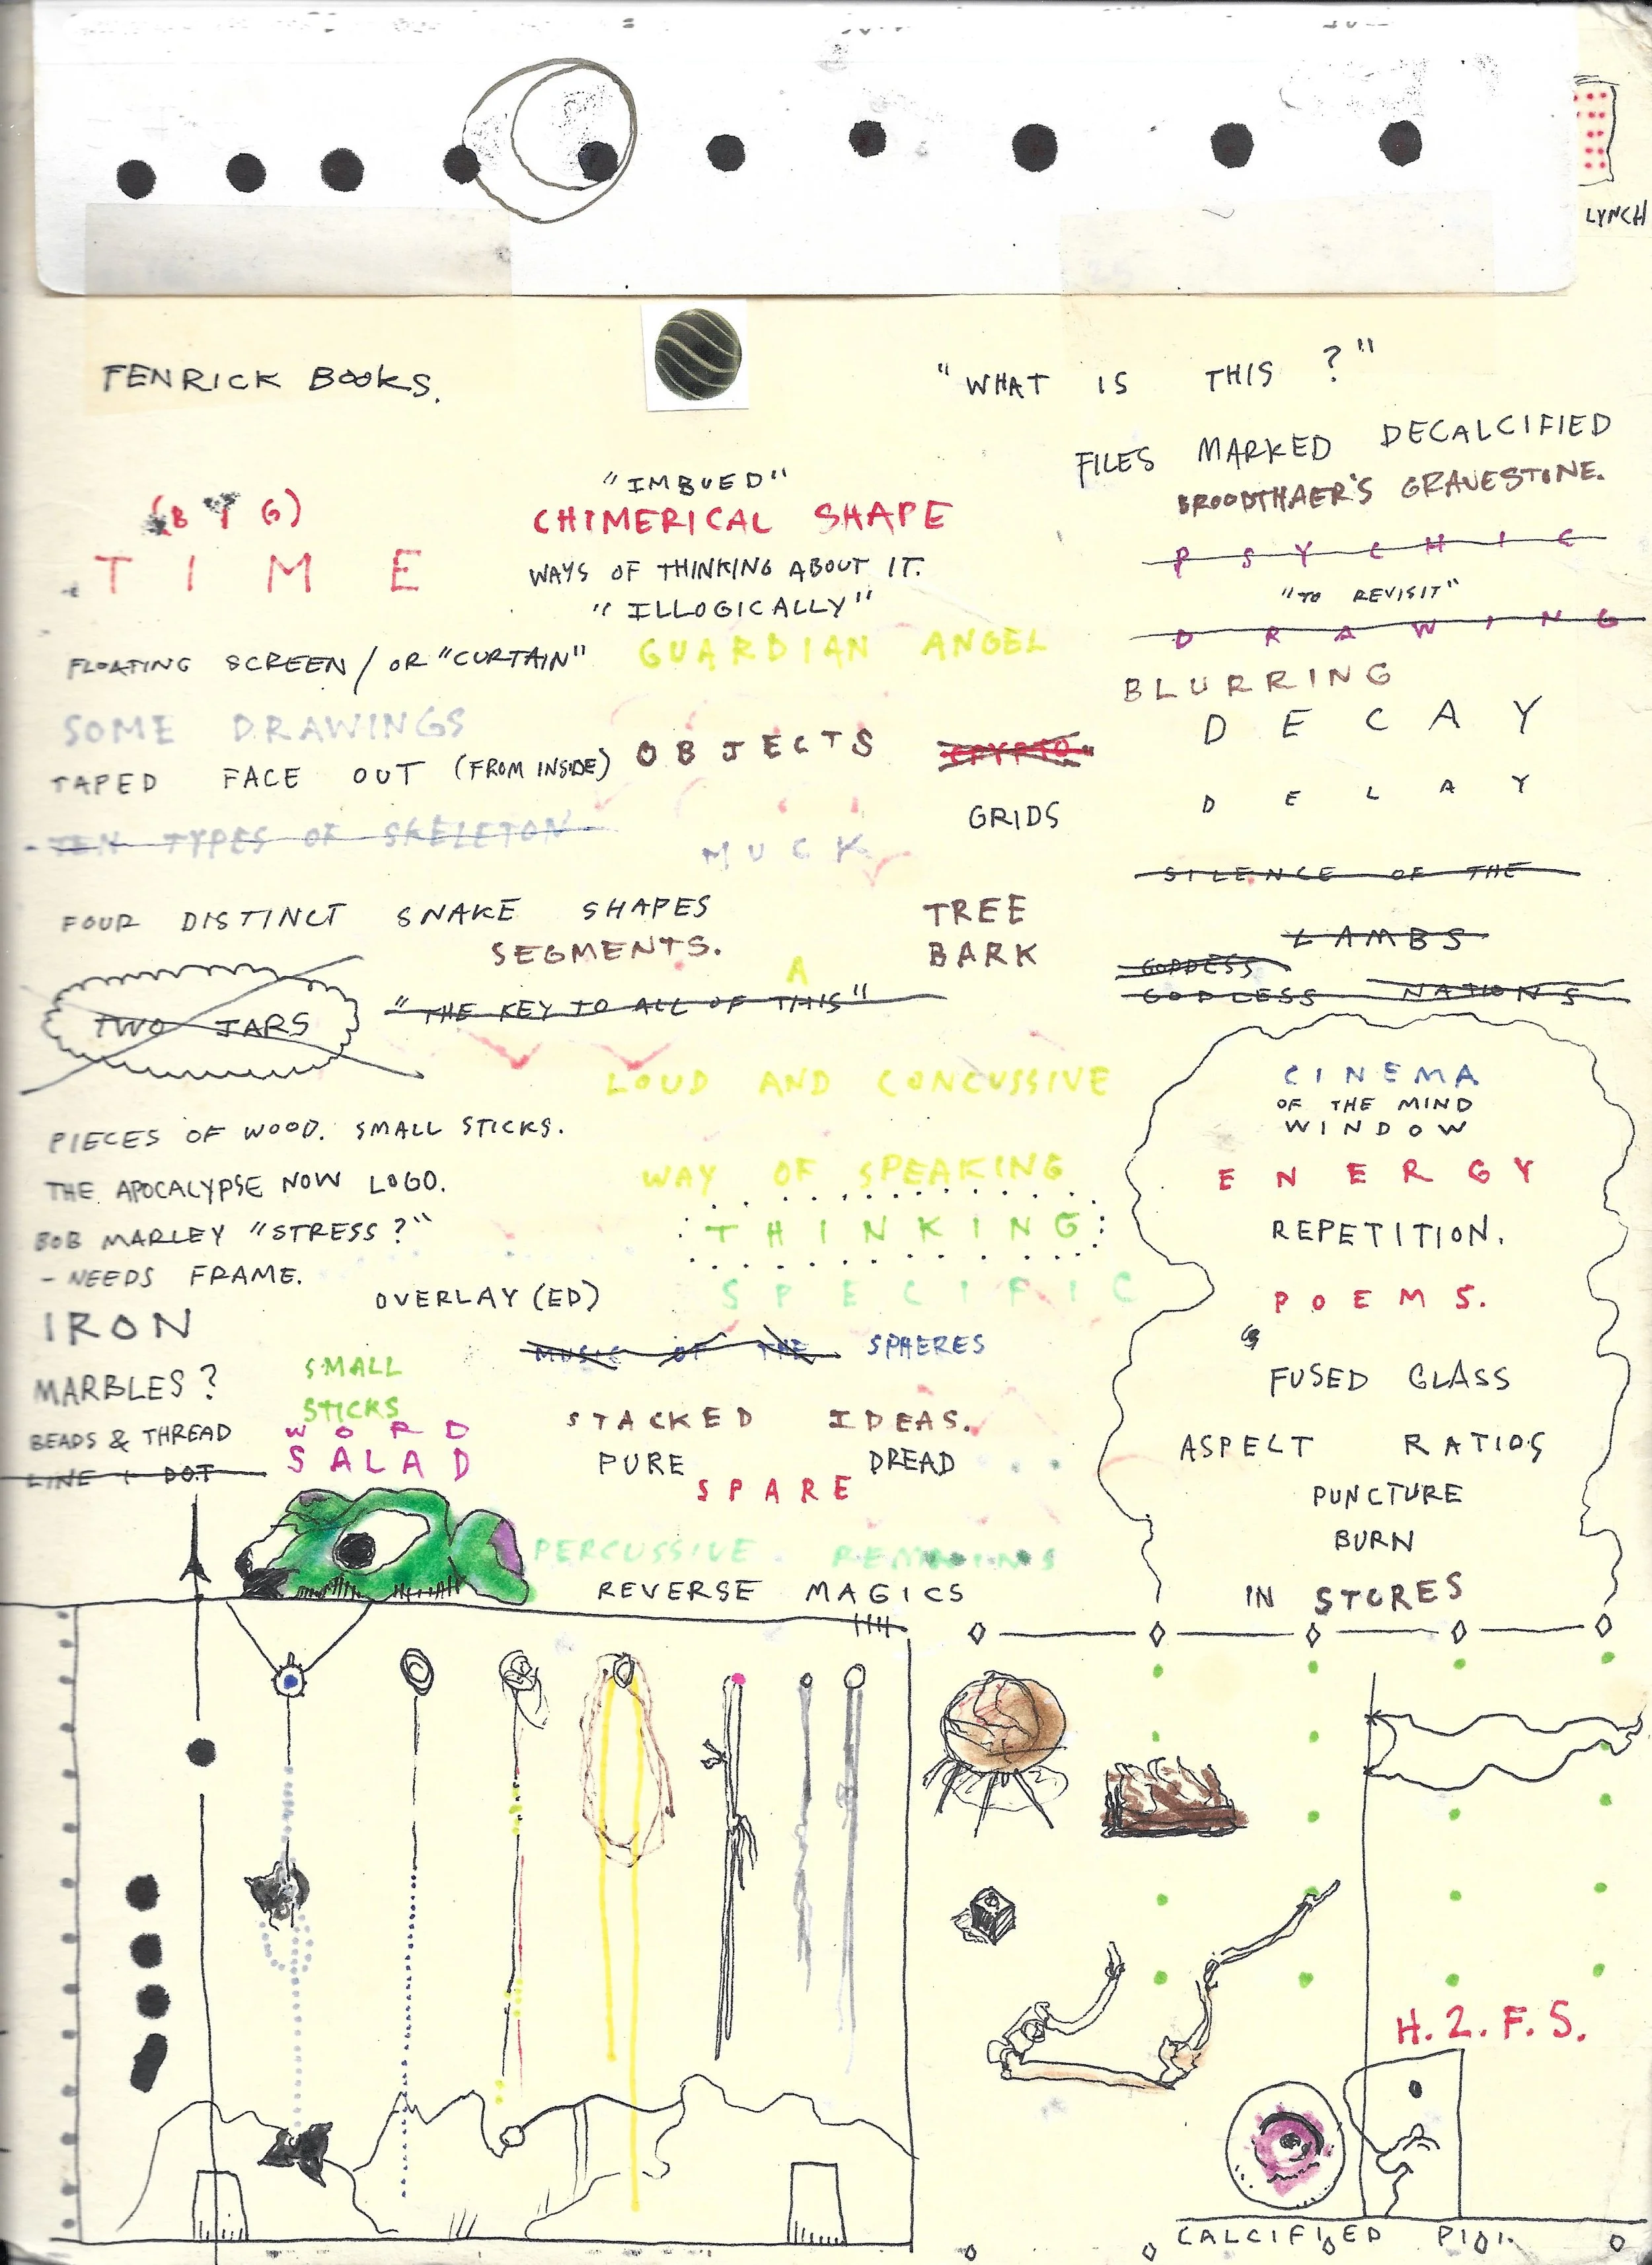 LYNCH
FENRICK BOOKS.
"WHAT IS THIS ?"
FILES MARKED DECALCIFIED
BROODTHAER'S GRAVESTONE.
(BIG)
TIME
"IMBUED"
CHIMERICAL SHAPE
WAYS OF THINKING ABOUT IT.
"ILLOGICALLY"
PSYCHIC
"TO REVISIT"
DRAWING
FLOATING SCREEN / OR "CURTAIN"
GUARDIAN ANGEL
BLURRING
SOME DRAWINGS
TAPED FACE OUT (FROM INSIDE)
OBJECTS
CRYPTO
GRIDS
DECAY
DELAY
TEN TYPES OF SKELETON
MUCK
SILENCE OF THE
LAMBS
GODDESS
GODLESS NATIONS
FOUR DISTINCT SNAKE SHAPES
SEGMENTS.
TREE
BARK
TWO JARS
A
"THE KEY TO ALL OF THIS"
LOUD AND CONCUSSIVE
WAY OF SPEAKING
THINKING
SPECIFIC
PIECES OF WOOD. SMALL STICKS.
THE APOCALYPSE NOW LOGO.
BOB MARLEY "STRESS?"
- NEEDS FRAME.
OVERLAY (ED)
IRON
MARBLES?
BEADS & THREAD
LINE + DOT
SMALL
STICKS
WORD
SALAD
MUSIC OF THE SPHERES
STACKED IDEAS.
PURE DREAD
SPARE
PERCUSSIVE
REVERSE MAGICS
CINEMA
OF THE MIND
WINDOW
ENERGY
REPETITION.
POEMS.
FUSED GLASS
ASPELT RATIOS
PUNCTURE
BURN
IN STORES
H.2.F.S.
CALCIFIED